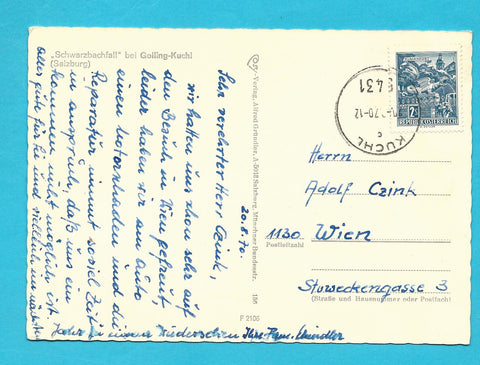 „Schwarzbachfall" bei Golling-Kuchl
(Salzburg)
20.8.70.
Sehr verehrter Herr Czink,
wir hatten uns schon sehr auf
den Besuch in Wien gefreut,
leider haben wir am Auto
einen Motorschaden und die
Reparatur nimmt soviel Zeit
in anspruch, daß uns ein
kommen nicht möglich ist.
Alles gute für Sie und vielleicht im nächsten
Jahr zu einem Wiedersehen Ihre Fam.
-Verlag, Alfred Gründler, A-5012 Salzburg, Münchner Bundesstr. 156
F 2106
REPUBLIK ÖSTERREICH
2
5431
70-12
c
KUCHL
Herrn
Adolf Czink
1130 Wien
Postleitzahl
Stuweckengasse 3
(Straße und Hausnummer oder Postfach)